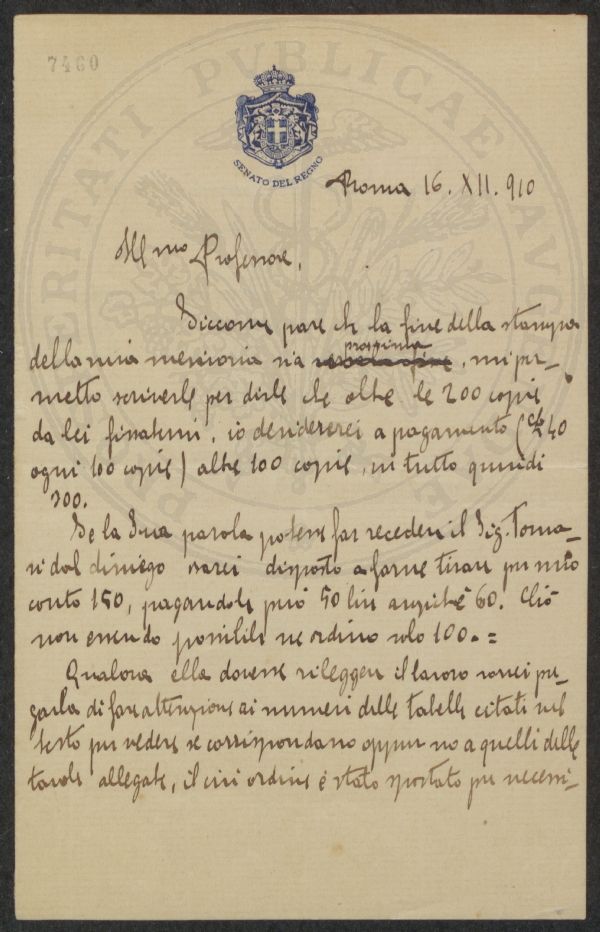 7460
VERITATI PVBLICAE
SENATO DEL REGNO
Roma 16. XII. 910
Ill mo Professore,
Siccome pare che la fine della stampa
della mia memoria sia prossima, mi per-
metto scriverle per dirle che oltre le 200 copie
da lei fissatemi, io desidererei a pagamento ( 40
ogni 100 copie) altre 100 copie, in tutto quindi
300.
Se la Sua parola potesse far recedere il Sig. Toma-
si dal diniego sarei disposto a farne tirare per mio
conto 150, pagandole però 50 lire anziché 60. Ciò
non essendo possibile ne ordino solo 100.=
Qualora ella dovesse rileggere il lavoro sarei pre-
garla di fare attenzione ai numeri delle tabelle citati nel
testo per vedere se corrispondano oppure no a quelli delle
tavole allegate, il cui ordine è stato spostato per necessi-